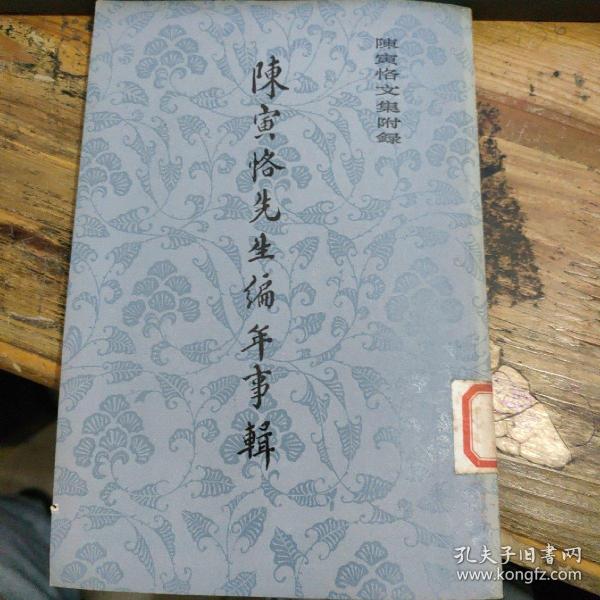 陳寅恪文集附録
陳寅恪先生編年事輯
孔夫子旧书网
www.kongfz.com